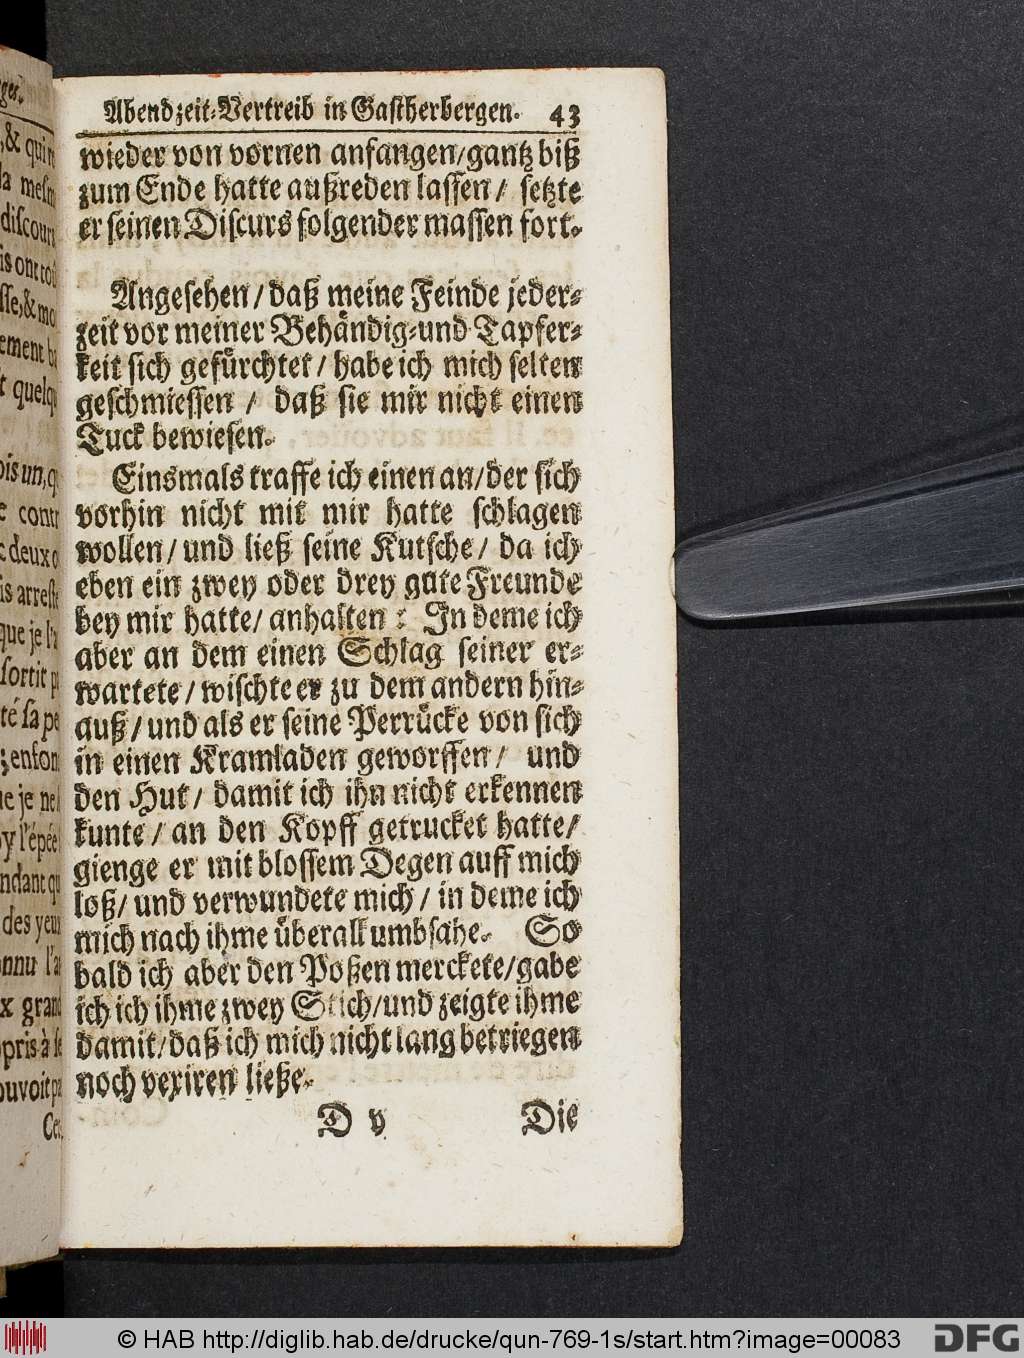 Abendzeit-Vertreib in Gastherbergen. 43
wieder von vornen anfangen/gantz biß
zum Ende hatte außreden lassen/ setzte
er seinen Discurs folgender massen fort.
Angesehen/daß meine Feinde jeder-
zeit vor meiner Behändig-und Tapfer-
keit sich gefürchtet/habe ich mich selten
geschmiessen/ daß sie mir nicht einen
Tuck bewiesen.
Einsmals traffe ich einen an/der sich
vorhin nicht mit mir hatte schlagen
wollen/und ließ seine Kutsche/ da ich
eben ein zwey oder drey gute Freunde
bey mir hatte/anhalten: In deme ich
aber an dem einen Schlag seiner er-
wartete/wischte er zu dem andern hin-
auß/und als er seine Perrücke von sich
in einen Kramladen geworffen/ und
den Hut/ damit ich ihn nicht erkennen
kunte/an den Kopff getrucket hatte/
gienge er mit blossem Degen auff mich
loß/und verwundete mich/in deme ich
mich nach ihme überall umbsahe. So
bald ich aber den Poßen merckete/gabe
ich ich ihme zwey Stich/und zeigte ihme
damit/daß ich mich nicht lang betriegen
noch vexiren ließe.
D v Die
ges.
,& qui
la mesm
discour
is ont
sse,&
ement
quelqu
ois un,
contr
deux
is arreste
que je l'a
sortit
té sa pe
; enfon
ue je ne
y l'épée
ndant qu
des yeux
onnu l'a
x grand
pris à
ouvoit pa
Ce
© HAB http://diglib.hab.de/drucke/qun-769-1s/start.htm?image=00083
DFG